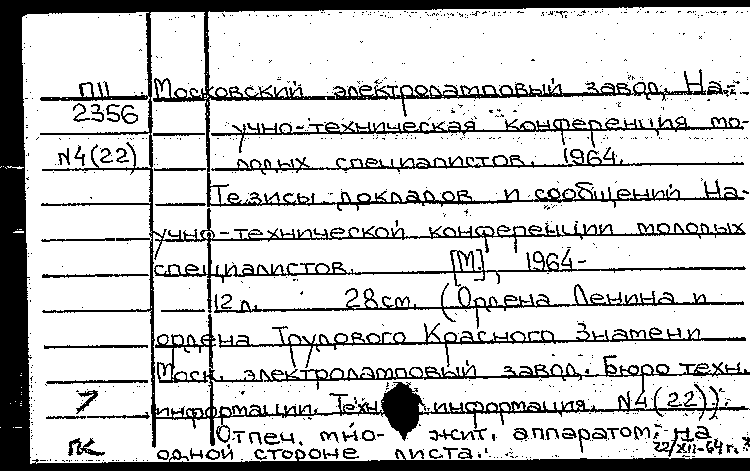 ПII Московский электроламповый завод. На-
2356 учно-техническая конференция мо-
N4(22) лодых специалистов. 1964.
Тезисы докладов и сообщений На-
учно-технической конференции молодых
специалистов. [М], 1964-
12 л. 28 см. (Ордена Ленина и
ордена Трудового Красного Знамени
Моск. электроламповый завод. Бюро техн.
7 информации. Техн. информация. N4(22))
Отпеч. множит. аппаратом: на
ГК одной стороне листа. 22/XII-64 г.